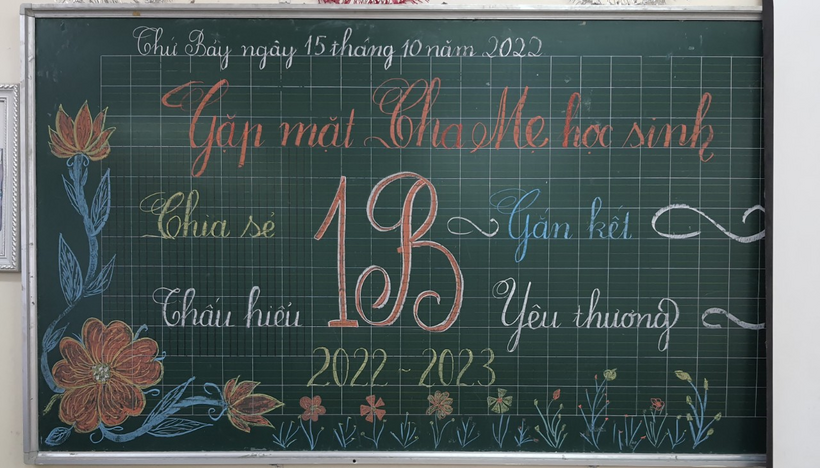 Thứ Bảy ngày 15 tháng 10 năm 2022
Gặp mặt Cha Mẹ học sinh
Chia sẻ 1B Gắn kết
Thấu hiểu Yêu thương
2022 - 2023